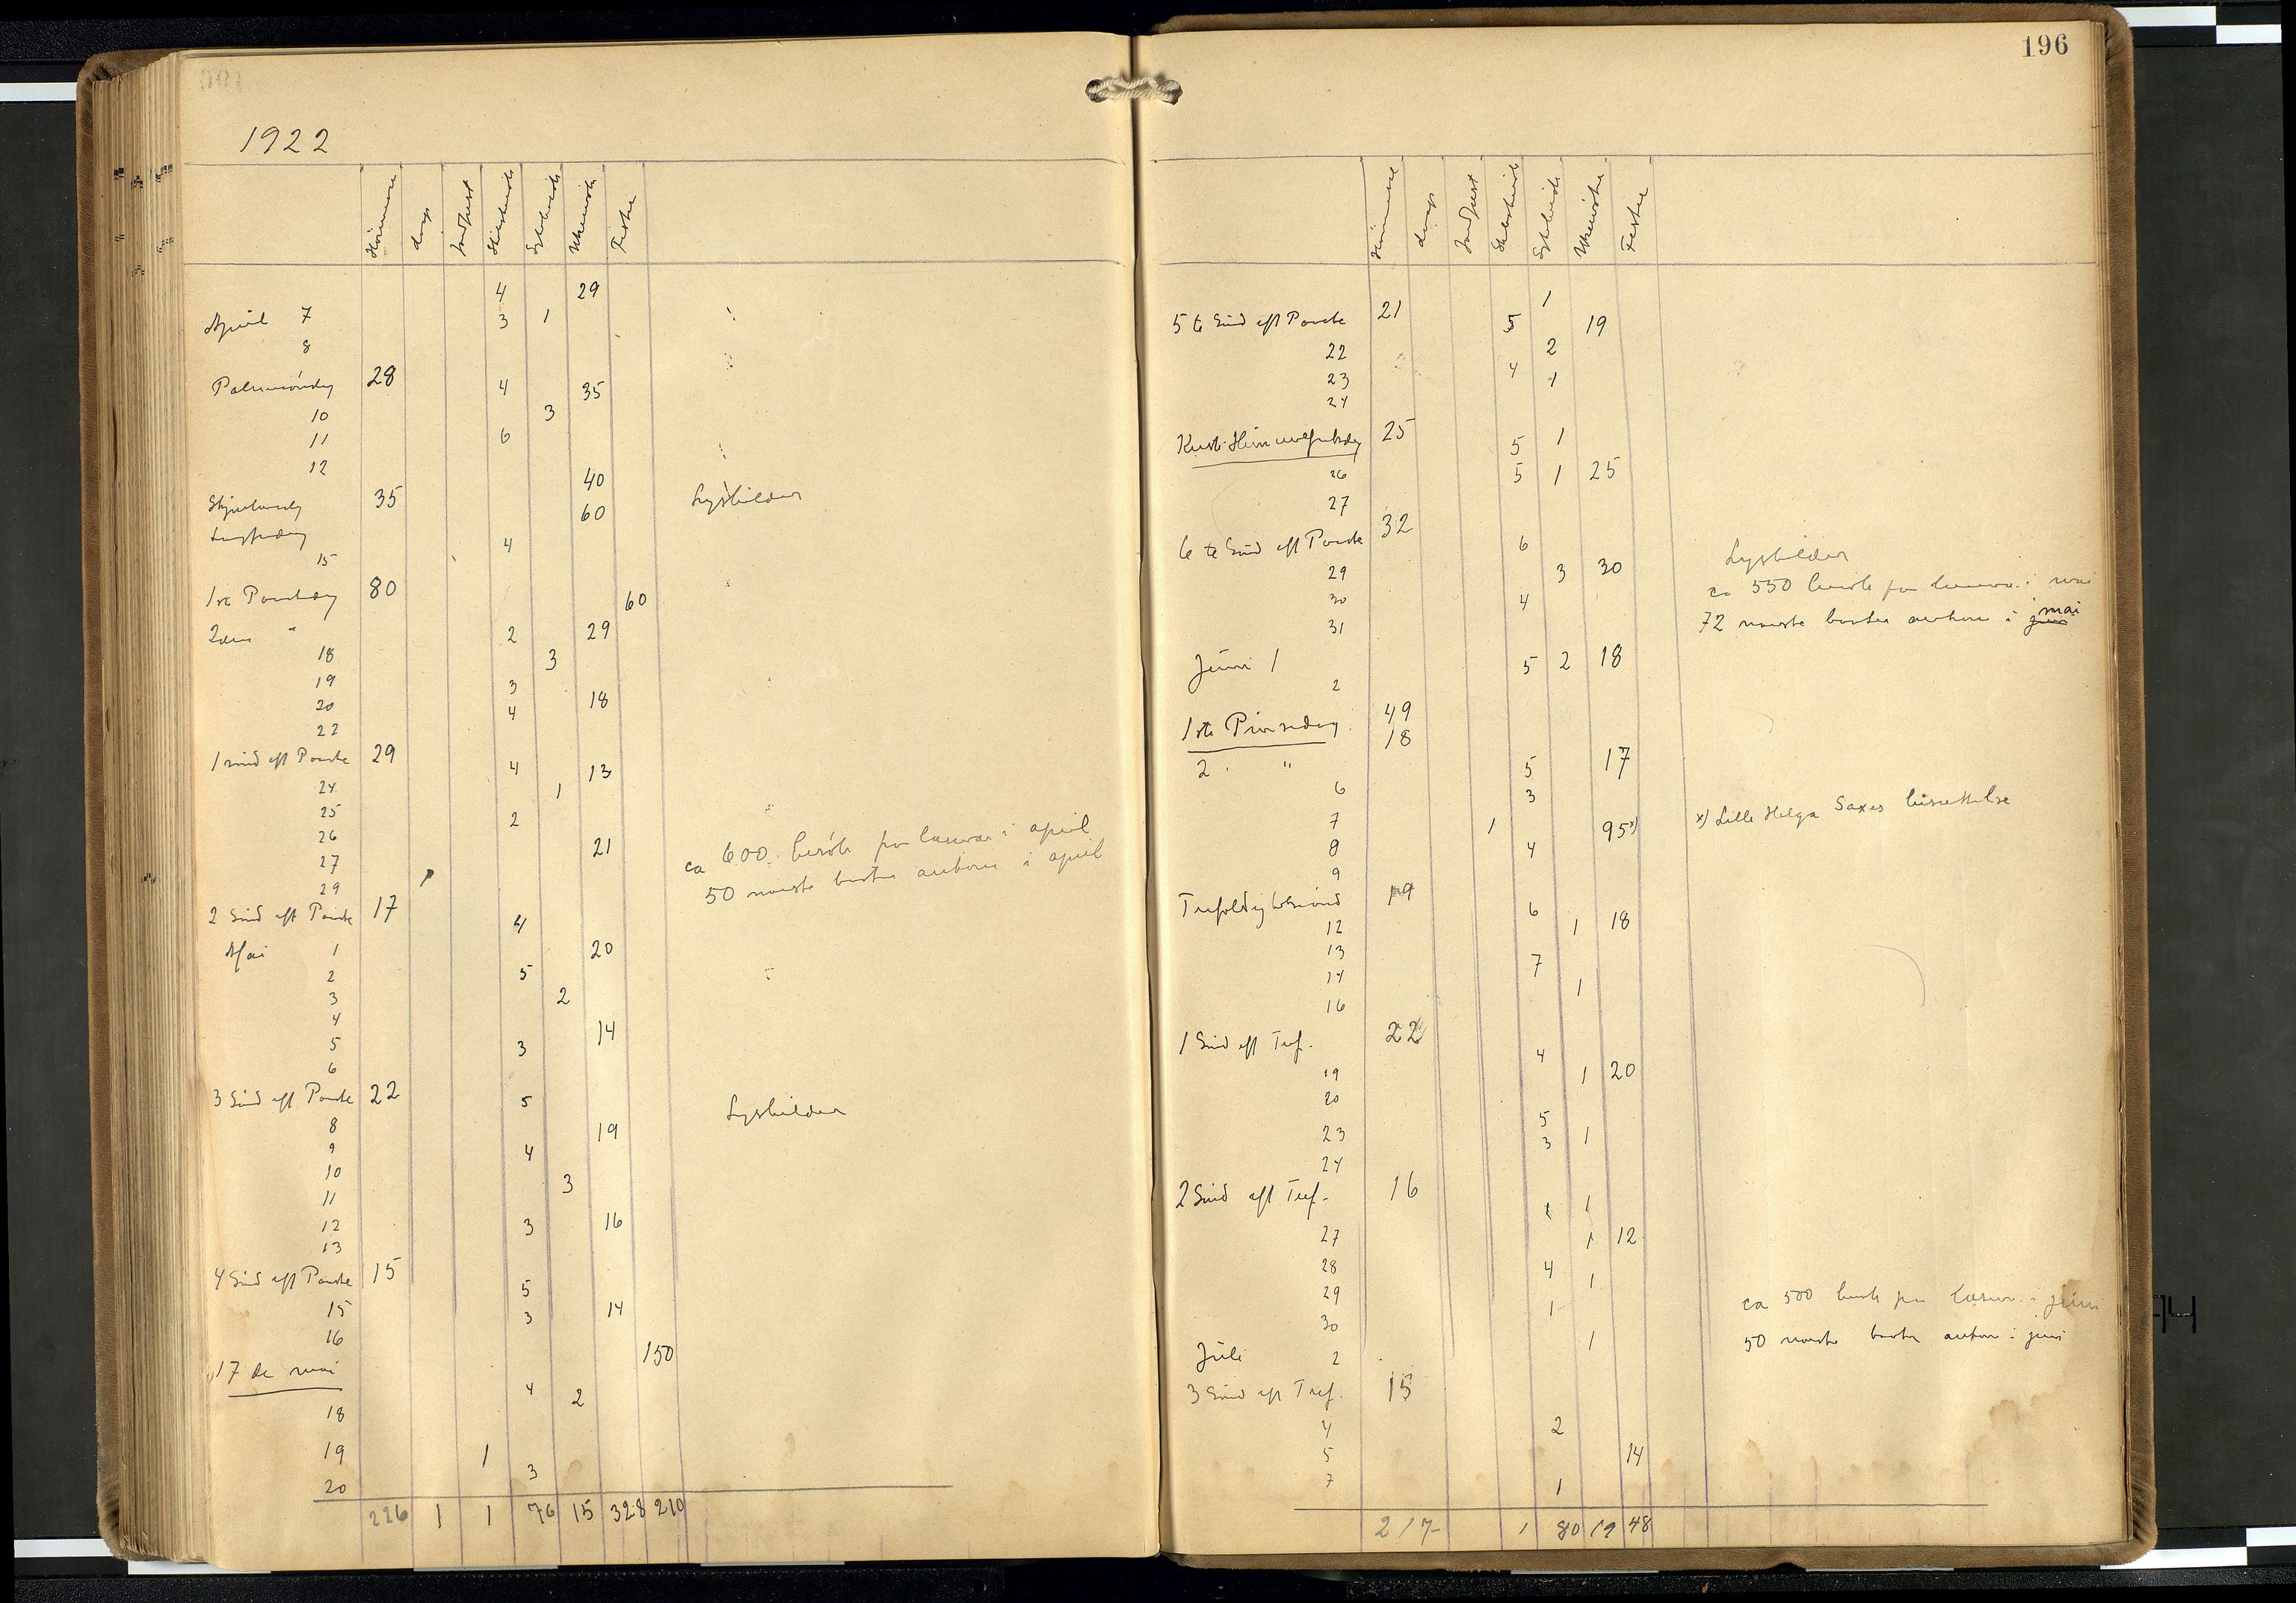 1922
Høimesse dåp Jordfæst Skibsbesøk Sykebesök Ukemöte Fester
4 29
April 7 3 1
8
Palmesöndag 28 4 35
10 3
11 6
12 40
Skjærtorsdag 35 60 Lysbilder
Langfredag 4
15
1ste Paaskedag 80 60
2den " 2 29
18 3
19 3 18
20 4
22
1 sönd eft Paaske 29 4 13
24 1
25 2
26 21
27 ca 600 besök paa læsevær. i april
29 1 50 norske breve ankom i april
2 Sönd eft Paaske 17 4
Mai 1 20
2 5
3 2
4 14
5 3
6
3 Sönd eft Paaske 22 5 Lysbilder
8 19
9 4
10 3
11
12 3 16
13
4 Sönd eft Paaske 15 5
15 3 14
16
17 de mai 150
4 2
18
19 1
20 3
226 1 1 76 15 328 210
196
Høimesse dåp Jordfæst Skibsbesök Sykebesök Ukemöte Fester
1
5 te Sönd eft Paaske 21 5 19
22 2
23 4 1
24
Kristi Himmelfartsdag 25 5 1
26 5 1 25
27
6 te Sönd eft Paaske 32 6 Lysbilder
29 3 30 ca 550 besök paa læsevær. i mai
30 4 72 norske breve ankom i juni mai
31
Juni 1 5 2 18
2
1ste Pinsedag 49
2 " 18 5 17
6 3
7 1 95x) x) Lille Helga Saxes bisættelse
8 4
9
Trefoldighetssönd 19 6
12 1 18
13 7
14 1
16
1 Sönd eft Tref. 22 4
19 1 20
20 5
23 3 1
24
2 Sönd eft Tref. 16 1 1
27 1 12
28 4 1
29 1 ca 500 besök paa læsevær. i juni
30 1 50 norske breve ankom i juni
Juli 2
3 Sönd eft Tref. 15
4 2
5 14
7 1
217 1 80 19 48